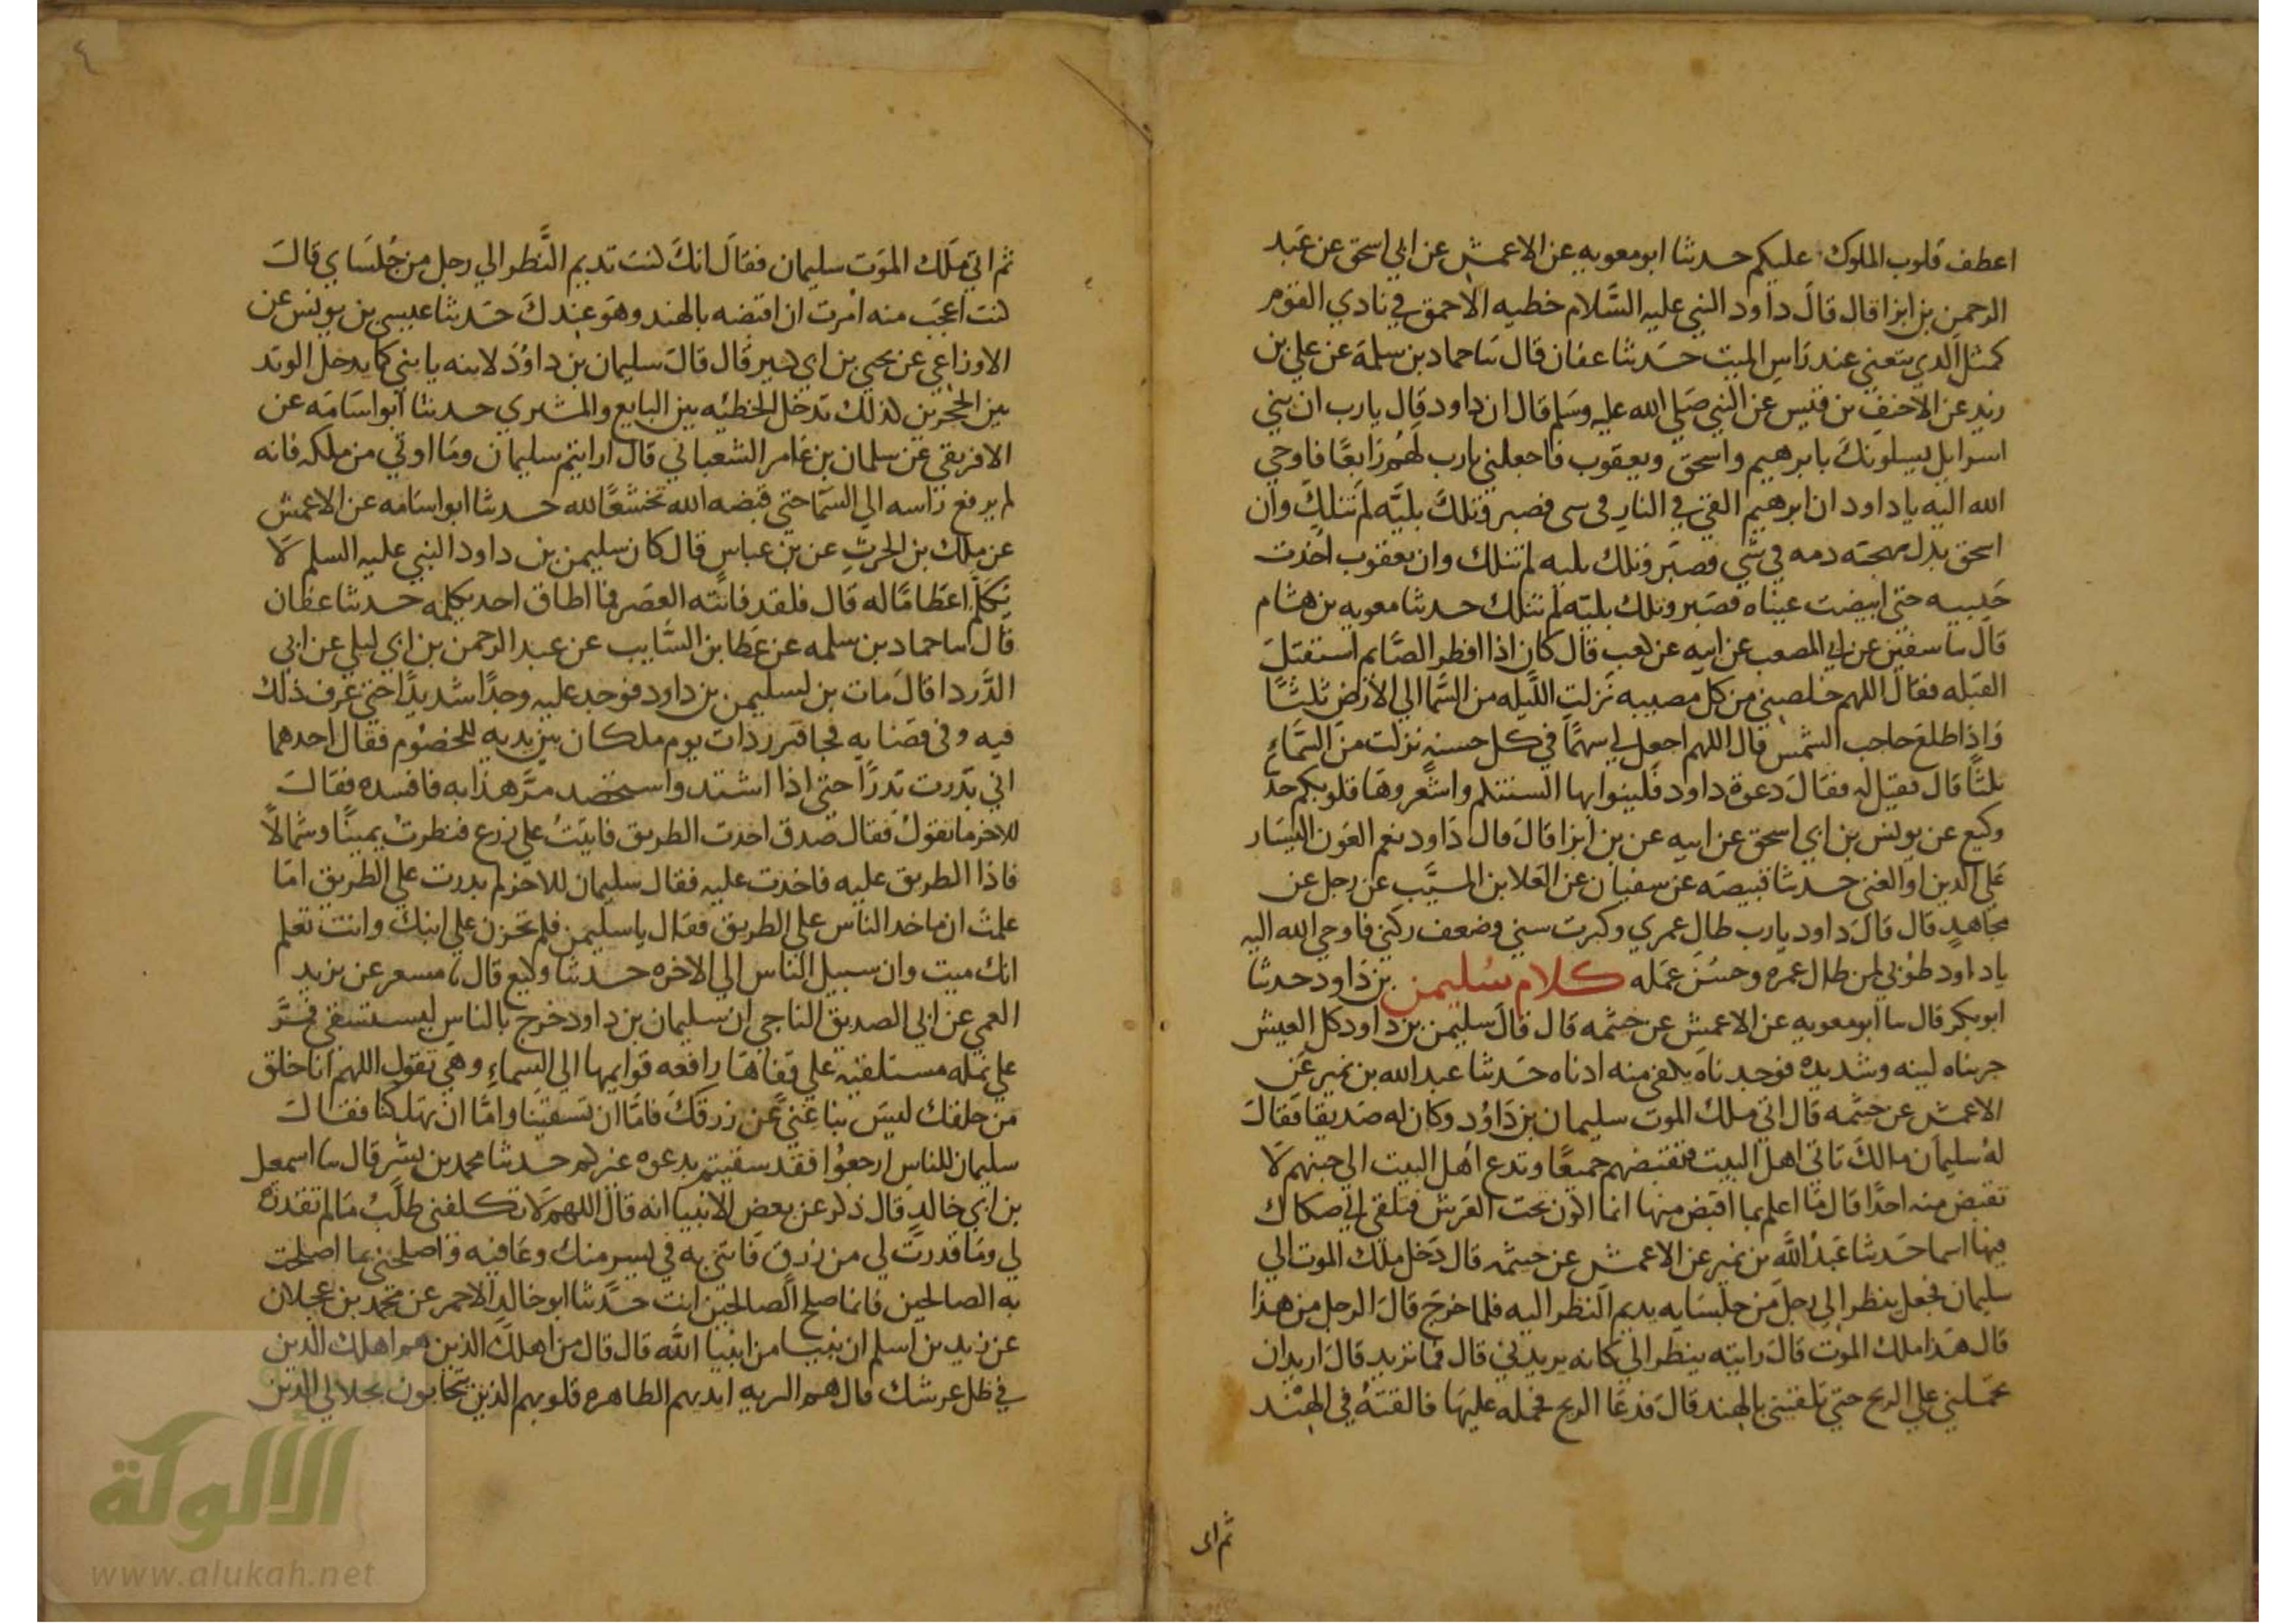 اعطف قلوب الملوك عليكم حدثنا ابو معويه عن الاعمش عن ابي اسحق عن عبد
الرحمن بن ابزا قال قال داود النبي عليه السلام خطيه الاحمق في نادي القوم
كمثل الذي يتغني عند راس الميت حدثنا عفان قال سا حماد بن سلمة عن علي بن
زيد عن الاحنف بن قيس عن النبي صلي الله عليه وسلم قال ان داود قال يا رب ان بني
اسرايل يسلونك بابرهيم واسحق ويعقوب فاجعلني يارب لهم رابعا فاوحي
الله اليه يا داود ان ابرهيم القي في النار في سى فصبر وتلك بليه لم تنلك وان
اسحق بذل مهجته دمه في شي فصبر وتلك بليه لم تنلك وان يعقوب اخذت
حبيبه حتي ابيضت عيناه فصبر وتلك بليه لم تنلك حدثنا معويه بن هشام
قال سا سفين عن ابي المصعب عن ابيه عن كعب قال كان اذا افطر الصايم استقبل
القبله فقال اللهم خلصني من كل مصيبه نزلت الليله من السما الي الارض ثلثا
واذا طلع حاجب الشمس قال اللهم اجعل لي سهما في كل حسنه نزلت من السماء
ثلثا قال فقيل له فقال دعوة داود فلينوا بها السنتكم واشعروها قلوبكم حد
وكيع عن يونس بن ابي اسحق عن ابيه عن بن ابزا قال قال داود نعم العون اليسار
علي الدين او الغني حدثنا قبيصه عن سفيان عن العلا بن المسيب عن رجل عن
مجاهد قال قال داود يارب طال عمري وكبرت سني وضعف ركني فاوحي الله اليه
ياداود طوبي لمن طال عمره وحسن عمله كلام سليمن بن داود حدثنا
ابو بكر قال سا ابو معويه عن الاعمش عن خيثمه قال قال سليمن بن داود كل العيش
جربناه لينه وشديده فوجدناه يكفي منه ادناه حدثنا عبد الله بن نمير عن
الاعمش عن خيثمه قال اتي ملك الموت سليمان بن داود وكان له صديقا فقال
له سليمان مالك تاتي اهل البيت فتقبضهم جميعا وتدع اهل البيت الي جنبهم لا
تقبض منه احدا قال ما اعلم بما اقبض منها انما اكون تحت العرش فيلقي الي صكاك
فيها اسما حدثنا عبد الله بن نمير عن الاعمش عن خيثمه قال دخل ملك الموت الي
سليمان فجعل ينظر الي رجل من جلسايه يديم النظر اليه فلما خرج قال الرجل من هذا
قال هذا ملك الموت قال رايته ينظر الي كانه يريدني قال فما تريد قال اريد ان
تحملني علي الريح حتي تلقيني بالهند قال فدعا الريح فحمله عليها فالقته في الهند
ثم اتى
٤
ثم اتي ملك الموت سليمان فقال انك كنت تديم النظر الي رجل من جلساي قال
كنت اعجب منه امرت ان اقبضه بالهند وهو عندك حدثنا عيسي بن يونس عن
الاوزاعي عن يحيي بن ابي كثير قال قال سليمان بن داود لابنه يا بني كما يدخل الوتد
بين الحجرين كذلك تدخل الخطيه بين البايع والمشتري حدثنا ابو اسامه عن
الافريقي عن سلمان بن عامر الشعباني قال ارايتم سليمان وما اوتي من ملكه فانه
لم يرفع راسه الي السما حتي قبضه الله تخشعا لله حدثنا ابو اسامه عن الاعمش
عن ملك بن الحرث عن بن عباس قال كان سليمن بن داود النبي عليه السلم لا
يكلم اعظاما له قال فلقد فاتته العصر فما اطاق احد يكلمه حدثنا عفان
قال سا حماد بن سلمه عن عطا بن السايب عن عبد الرحمن بن ابي ليلي عن ابي
الدردا قال مات بن لسليمن بن داود فوجد عليه وجدا شديدا حتي عرف ذلك
فيه وفي قضايه فجا فبرز ذات يوم ملكان بين يديه للخصوم فقال احدهما
اني بذرت بذرا حتي اذا اشتد واستحصد مر هذا به فافسده فقال
للاخر ما تقول فقال صدق اخذت الطريق فاتيت علي زرع فنظرت يمينا وشمالا
فاذا الطريق عليه فاخذت عليه فقال سليمان للاخر لم بدرت علي الطريق اما
علمت ان ماخد الناس علي الطريق فقال يا سليمن فلم تحزن علي ابنك وانت تعلم
انك ميت وان سبيل الناس الي الاخره حدثنا وكيع قال سا مسعر عن يزيد
العمي عن ابي الصديق الناجي ان سليمان بن داود خرج بالناس ليستسقي فمر
علي نمله مستلقيه علي قفاها رافعه قوايمها الي السماء وهي تقول اللهم انا خلق
من خلقك ليس بنا غني عن رزقك فاما ان تسقينا واما ان تهلكنا فقال
سليمان للناس ارجعوا فقد سقيتم بدعوه غيركم حدثنا محمد بن بشر قال سا اسمعيل
بن ابي خالد قال ذكر عن بعض الانبيا انه قال اللهم لا تكلفني طلب ما لم تقدره
لي وما قدرت لي من رزق فاتني به في يسر منك وعافيه واصلحني بما اصلحت
به الصالحين فانما صلح الصالحين انت حدثنا ابو خالد الاحمر عن محمد بن عجلان
عن زيد بن اسلم ان نبيا من انبيا الله قال قال من اهلك الذين هم اهلك الذين
في ظل عرشك قال هم البريه ايديهم الطاهره قلوبهم الذين يتحابون بجلالي الذين
الألوكة
www.alukah.net